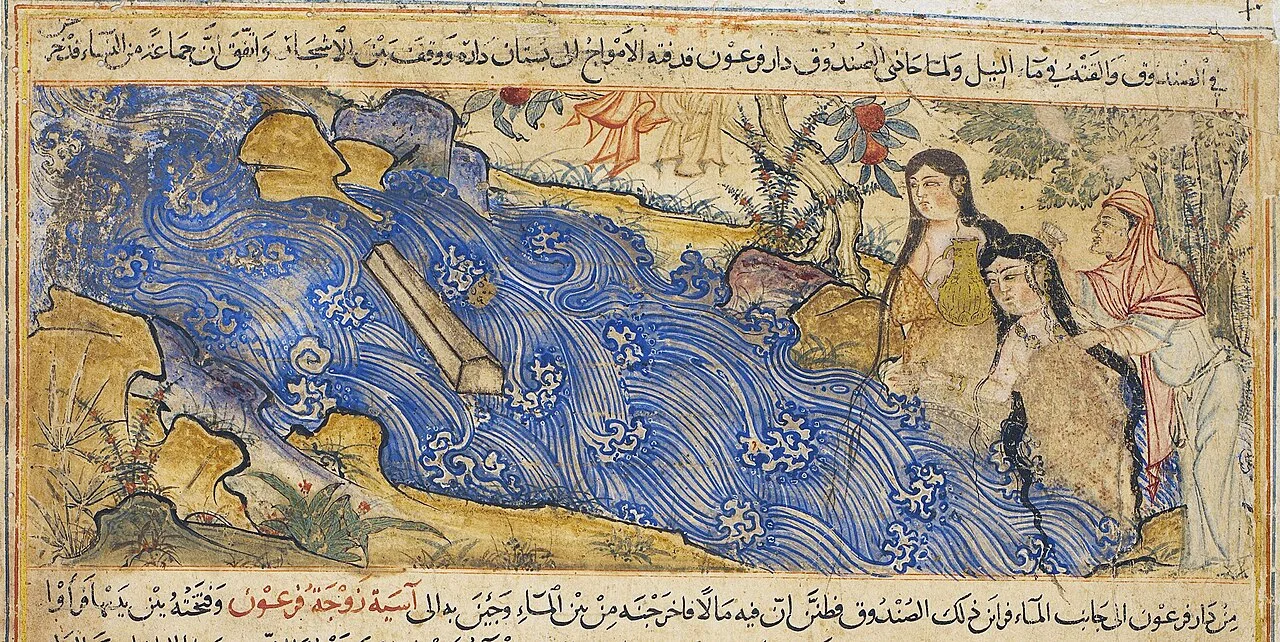 في الصندوق والقته في ماء النيل ولما حاذى الصندوق دار فرعون قدفته الامواج الى بستان داره ووقف بين الاشجار واتفق ان جماعة من النساء قد خرجن
من دار فرعون الى جانب الماء فراين ذلك الصندوق فظنن ان فيه مالا فاخرجنه من بين الماء وجئن به الى آسية زوجة فرعون وفتحته بين يديها فراوا